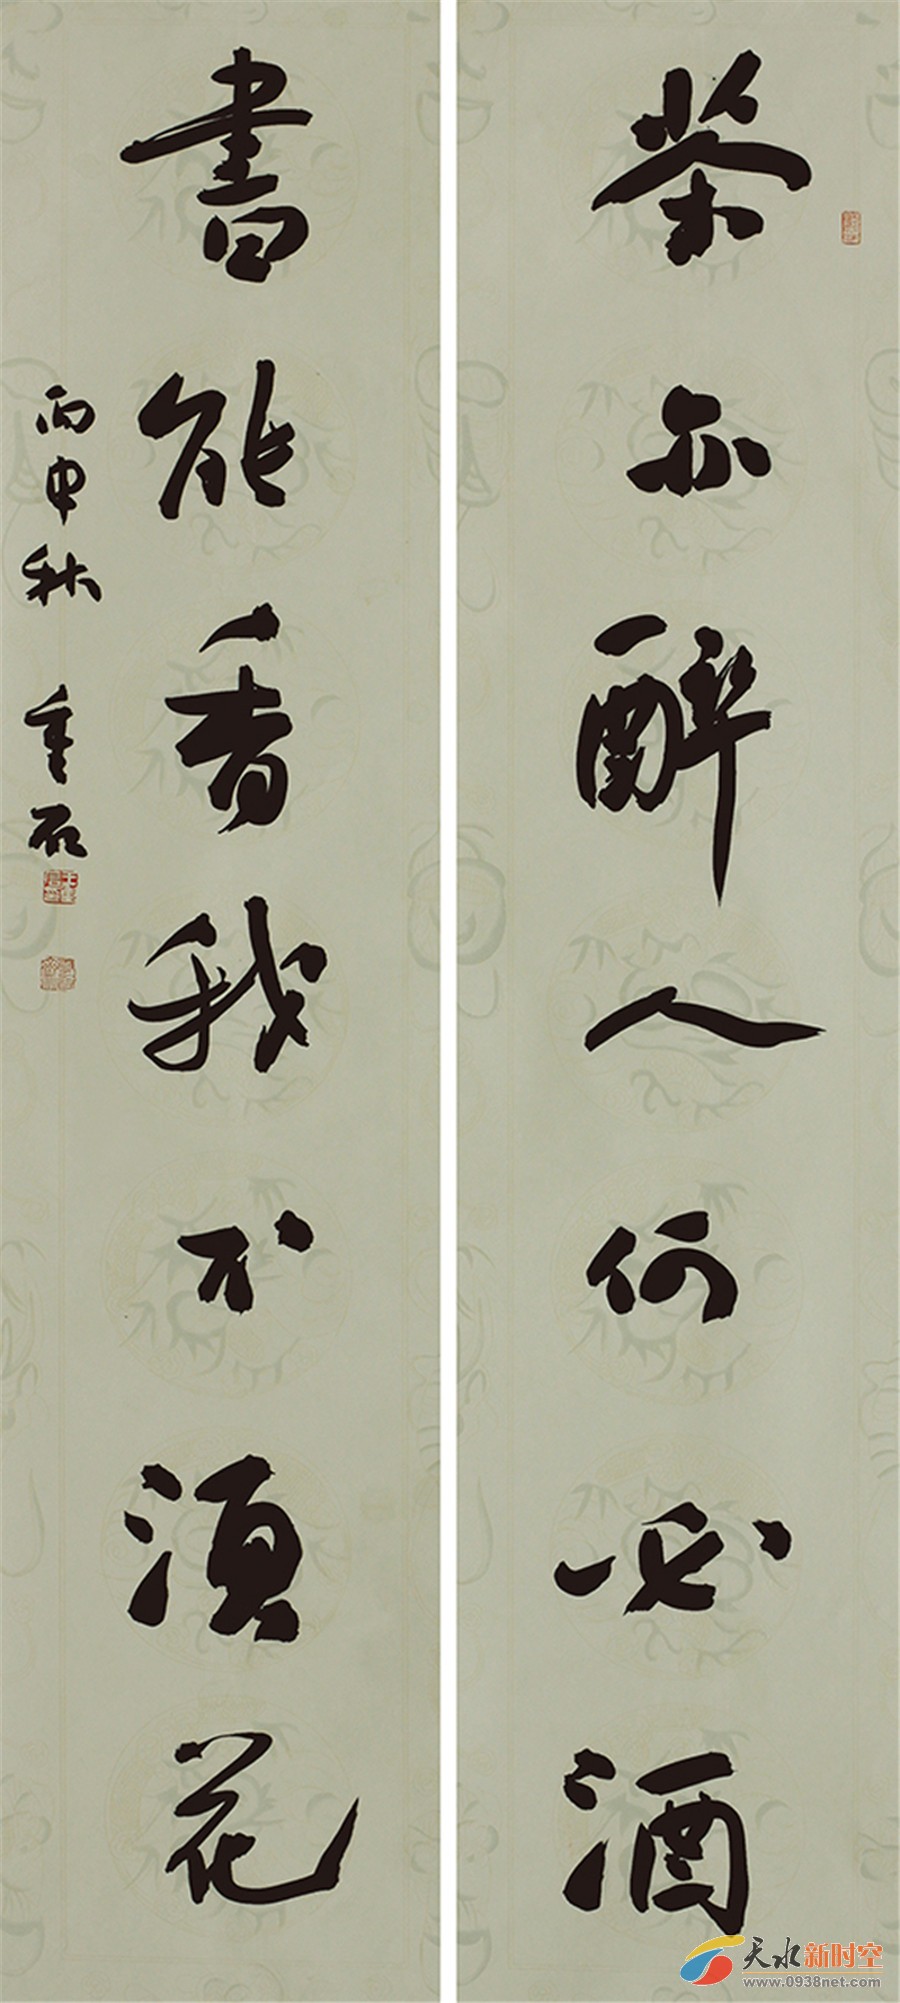 茶亦醉人何必酒
書能香我不須花
丙申秋 重石
天水新时空
www.0938net.com